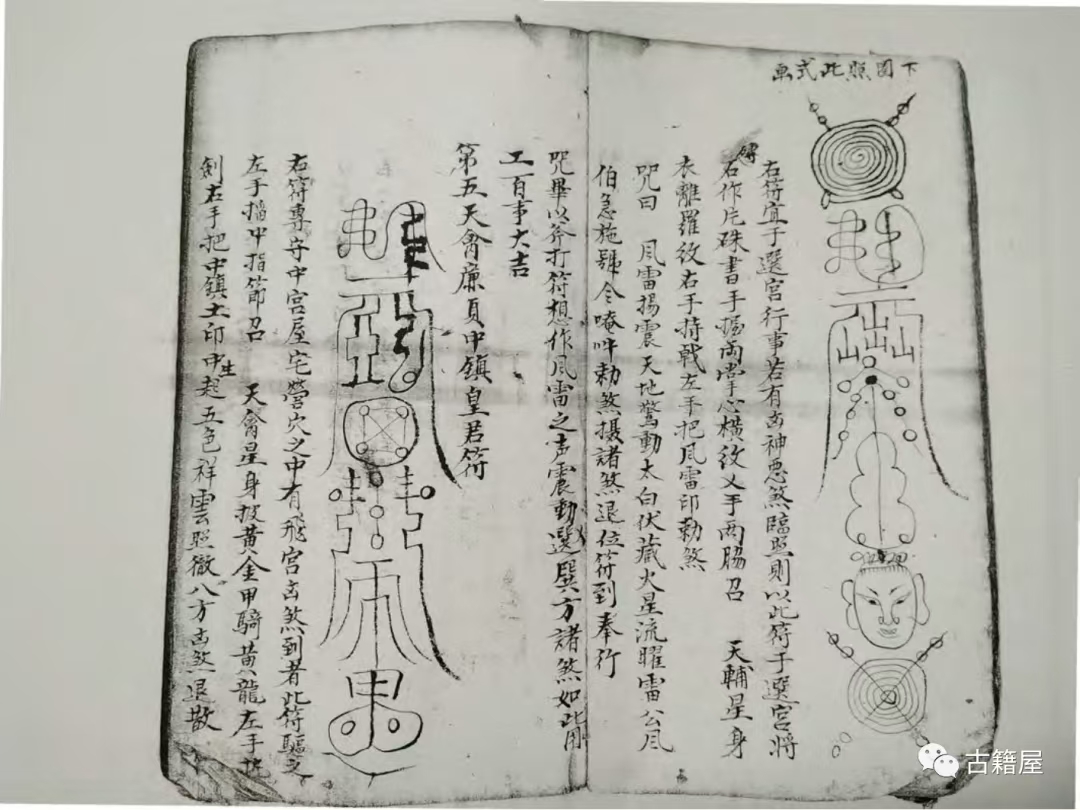 下图照此式画
右符宜于選宫行事若有凶神恶煞臨照則以此符于選宫將
右作片硃書手握两掌心横纹义手两脇召 天輔星身
衣離羅纹右手持戟左手把風雷印勅煞
咒曰 風雷揚震天地驚動太白伏藏火星流曜雷公風
伯急施號令唵吽勅煞摄諸煞退位符到奉行
咒畢以斧打符想作風雷之声震動選巽方諸煞如此用
工百事大吉
第五天禽廉貞中鎮皇君符
右符專守中宫屋宅營穴之中有飛宫凶煞到者此符驅之
左手搯中指節召 天禽星身披黄金甲騎黄龍左手
劍右手把中鎮土印中生起五色祥雲照徹八方凶煞退散
古籍屋